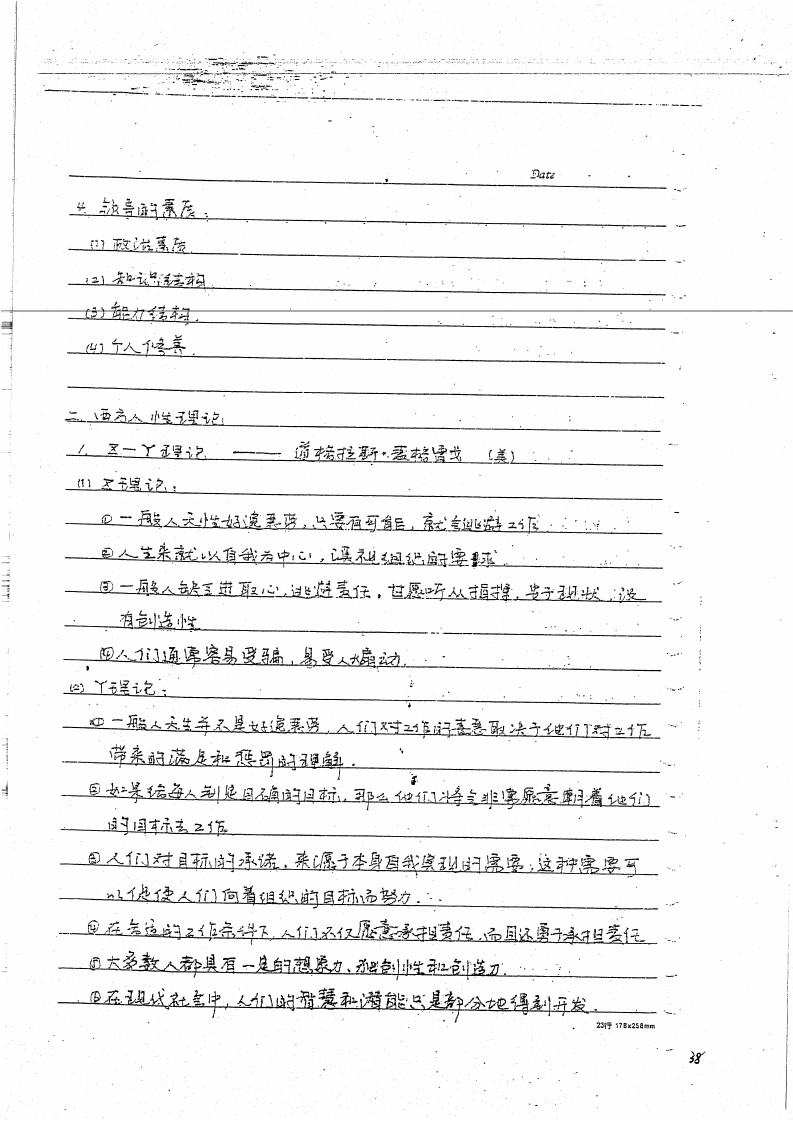 Date
4. 领导的素质:
(1) 政治素质
(2) 知识结构
(3) 能力结构.
(4) 个人修养.
二. 西方人性理论:
1. X—Y理论 —— 道格拉斯·麦格雷戈 (美)
(1) X理论:
① 一般人天性好逸恶劳, 只要有可能, 就会逃避工作
② 人生来就以自我为中心, 漠视组织的需要求.
③ 一般人缺乏进取心, 逃避责任, 甘愿听从指挥, 安于现状, 没
有创造性
④ 人们通常容易受骗, 易受人煽动.
(2) Y理论:
① 一般人天生并不是好逸恶劳, 人们对工作的喜恶取决于他们对工作
带来的满足和惩罚的理解.
② 如果给每人制定明确的目标, 那么他们将会非常愿意朝着他们
的目标去工作
③ 人们对目标的承诺, 来源于本身自我实现的需要; 这种需要可
以促使人们向着组织的目标而努力.
④ 在合适的工作条件下, 人们不仅愿意承担责任, 而且还勇于承担责任
⑤ 大多数人都具有一定的想象力、独创性和创造力.
⑥ 在现代社会中, 人们的智慧和潜能只是部分地得到开发.
23行 178x258mm
38